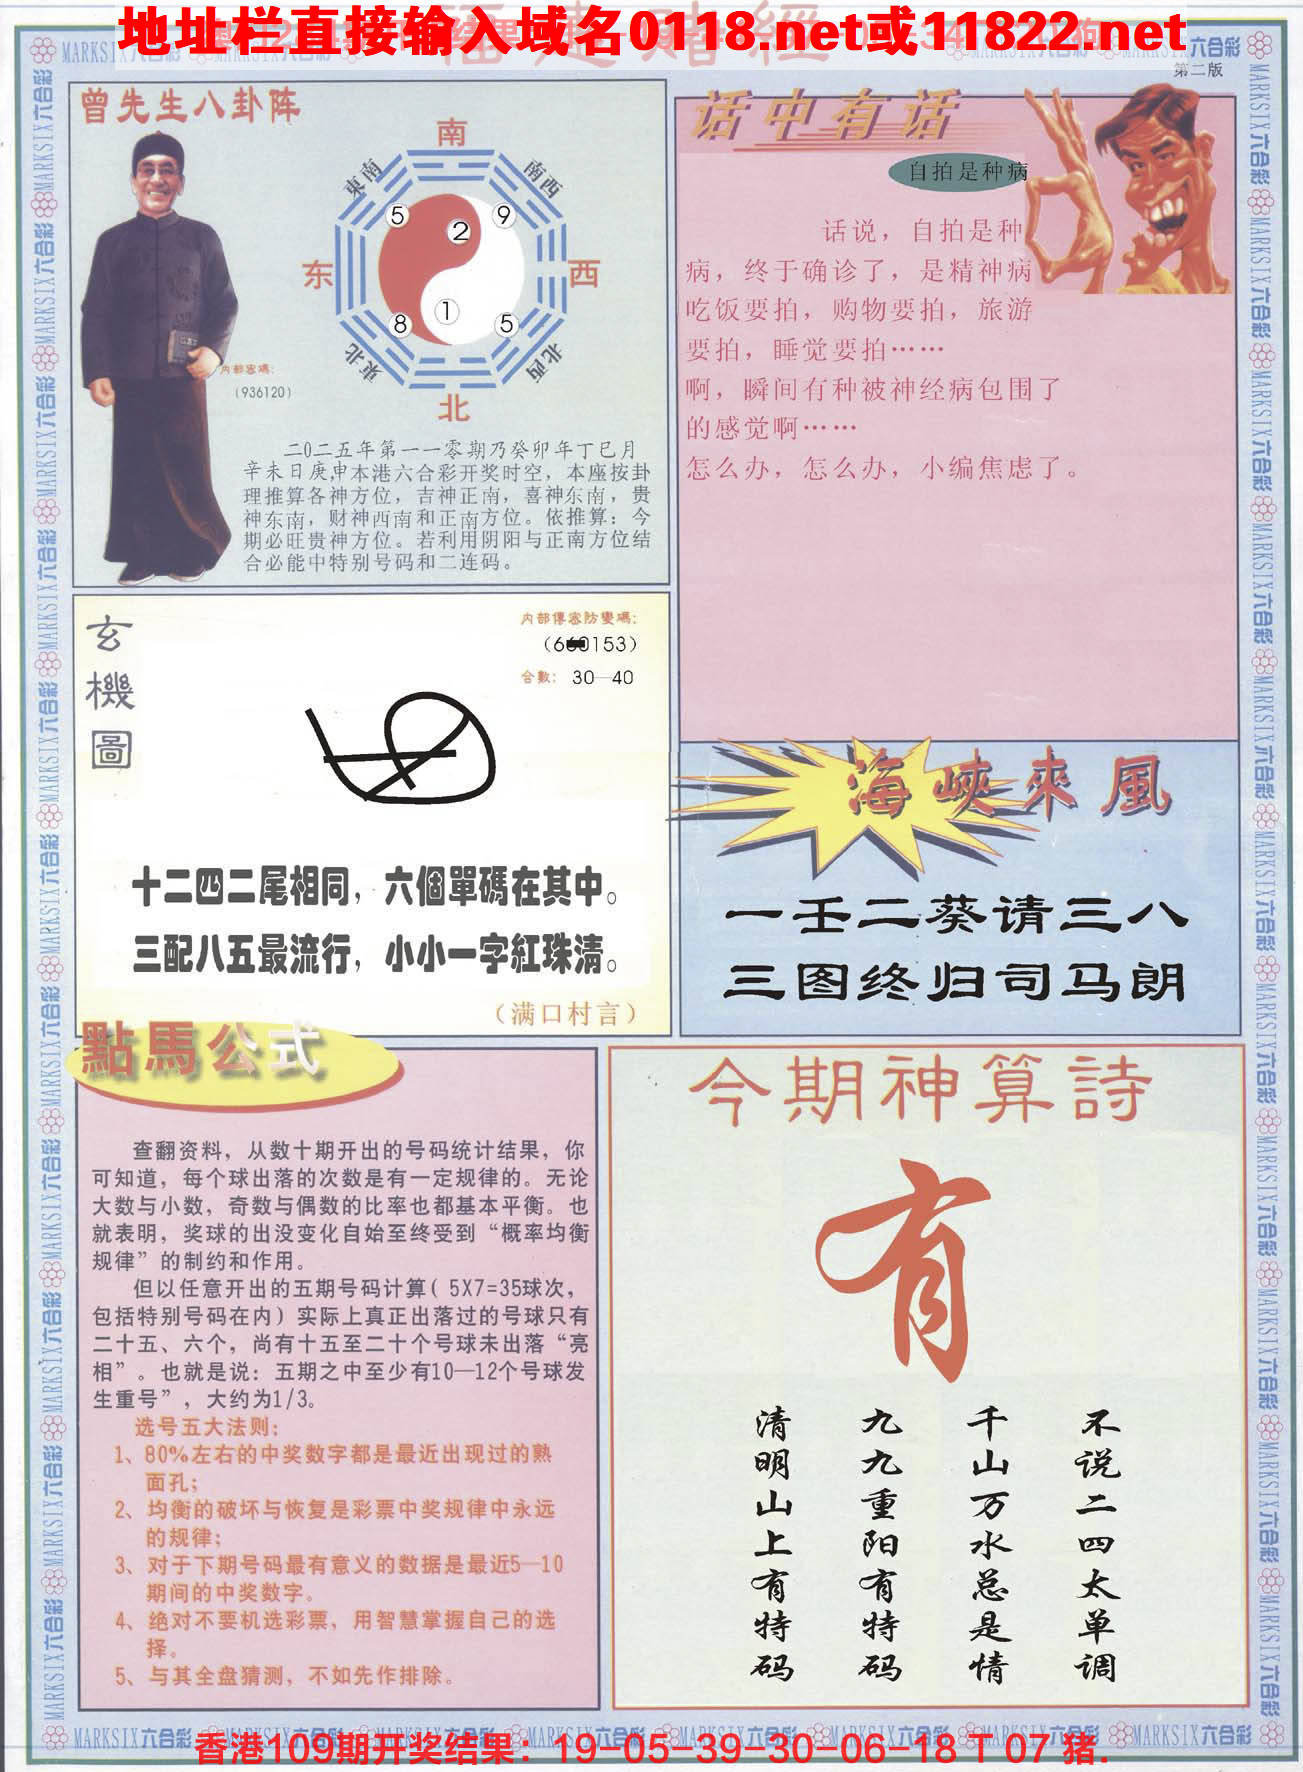 地址栏直接输入域名0118.net或11822.net
第二版
曾先生八卦阵
南
東南
南西
5
9
2
东
西
1
8
5
東北
北西
北
内部密碼:
(936120)
二0二五年第一一零期乃癸卯年丁巳月
辛未日庚申本港六合彩开奖时空，本座按卦
理推算各神方位，吉神正南，喜神东南，贵
神东南，财神西南和正南方位。依推算：今
期必旺贵神方位。若利用阴阳与正南方位结
合必能中特别号码和二连码。
话中有话
自拍是种病
话说，自拍是种
病，终于确诊了，是精神病
吃饭要拍，购物要拍，旅游
要拍，睡觉要拍……
啊，瞬间有种被神经病包围了
的感觉啊……
怎么办，怎么办，小编焦虑了。
玄機圖
内部傳密防變碼:
0153)
合數: 30—40
十二四二尾相同，六個單碼在其中。
三配八五最流行，小小一字紅珠清。
(满口村言)
海峽來風
一壬二葵请三八
三图终归司马朗
點馬公式
查翻资料，从数十期开出的号码统计结果，你
可知道，每个球出落的次数是有一定规律的。无论
大数与小数，奇数与偶数的比率也都基本平衡。也
就表明，奖球的出没变化自始至终受到“概率均衡
规律”的制约和作用。
但以任意开出的五期号码计算( 5X7=35球次，
包括特别号码在内)实际上真正出落过的号球只有
二十五、六个，尚有十五至二十个号球未出落“亮
相”。也就是说：五期之中至少有10—12个号球发
生重号”，大约为1/3。
选号五大法则：
1、80%左右的中奖数字都是最近出现过的熟
面孔；
2、均衡的破坏与恢复是彩票中奖规律中永远
的规律；
3、对于下期号码最有意义的数据是最近5—10
期间的中奖数字。
4、绝对不要机选彩票，用智慧掌握自己的选
择。
5、与其全盘猜测，不如先作排除。
今期神算詩
有
不说二四太单调
千山万水总是情
九九重阳有特码
清明山上有特码
MARKSIX六合彩
香港109期开奖结果：19-05-39-30-06-18 T 07 猪.